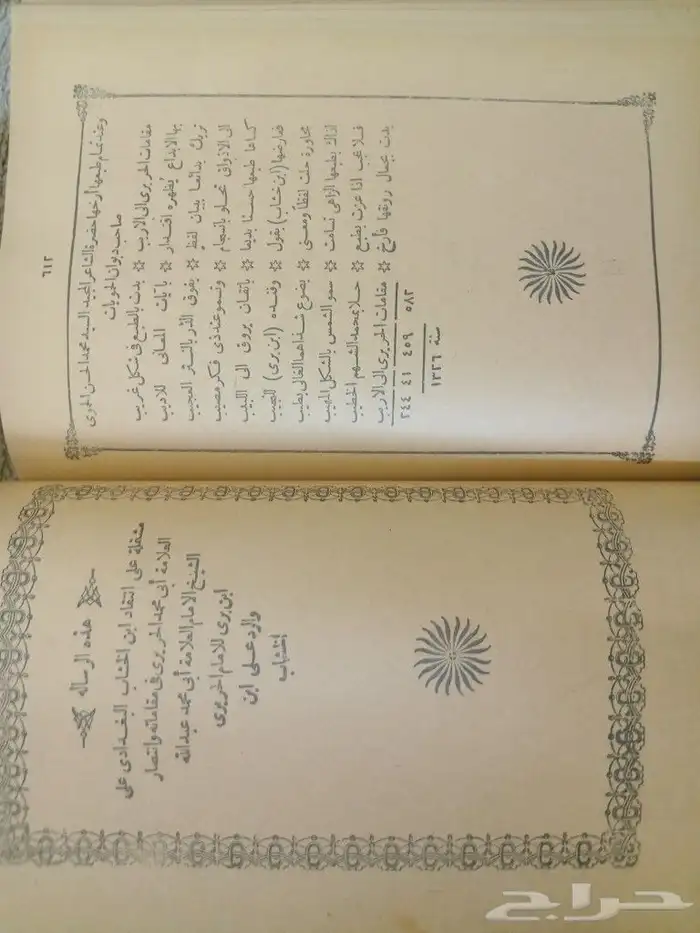 ٦١٢
وعند تمام طبعها أرخها حضرة الشاعر المجيد السيد محمد الحسن الحموى
صاحب ديوان الحمويات
مقامات الحريرى الى الاريب ✡ بدت بالطبع فى شكل غريب
بها الابداع يظهره اقتدار ✡ بآيات المعانى للاديب
تريك بدائعا ببيان لفظ ✡ يفوق الدر بالنثر العجيب
الى الاذواق تحلو بانسجام ✡ وتسمو عند ذى فكر مصيب
كساها طبعها حسنا بديعا ✡ باتقان يروق الى اللبيب
فعارضها (ابن خشاب) بقول ✡ وفنده (ابن برى)
محاورة حلت لفظا ومعنى ✡ يضوع شذاهما الغالى بطيب
لذاك بطبعها الزاهى تسامت ✡ سمو الشمس بالشكل المهيب
فلا عجب اذا عزت بطبع ✡ حلا بمحمد الشهم الخطيب
بدت بجمال رونقها فأرخ ✡ مقامات الحريرى الى الاريب
٥٨٢ ٤٥٩ ٤١ ٢٤٤
سنة ١٣٢٦
هذه الرساله
مشتملة على انتقاد ابن الخشاب البغدادى على
العلامة أبى محمد الحريرى فى مقاماته وانتصار
الشيخ الامام العلامة أبى محمد عبدالله
ابن برى للامام الحريرى
والرد على ابن
الخشاب
حراج